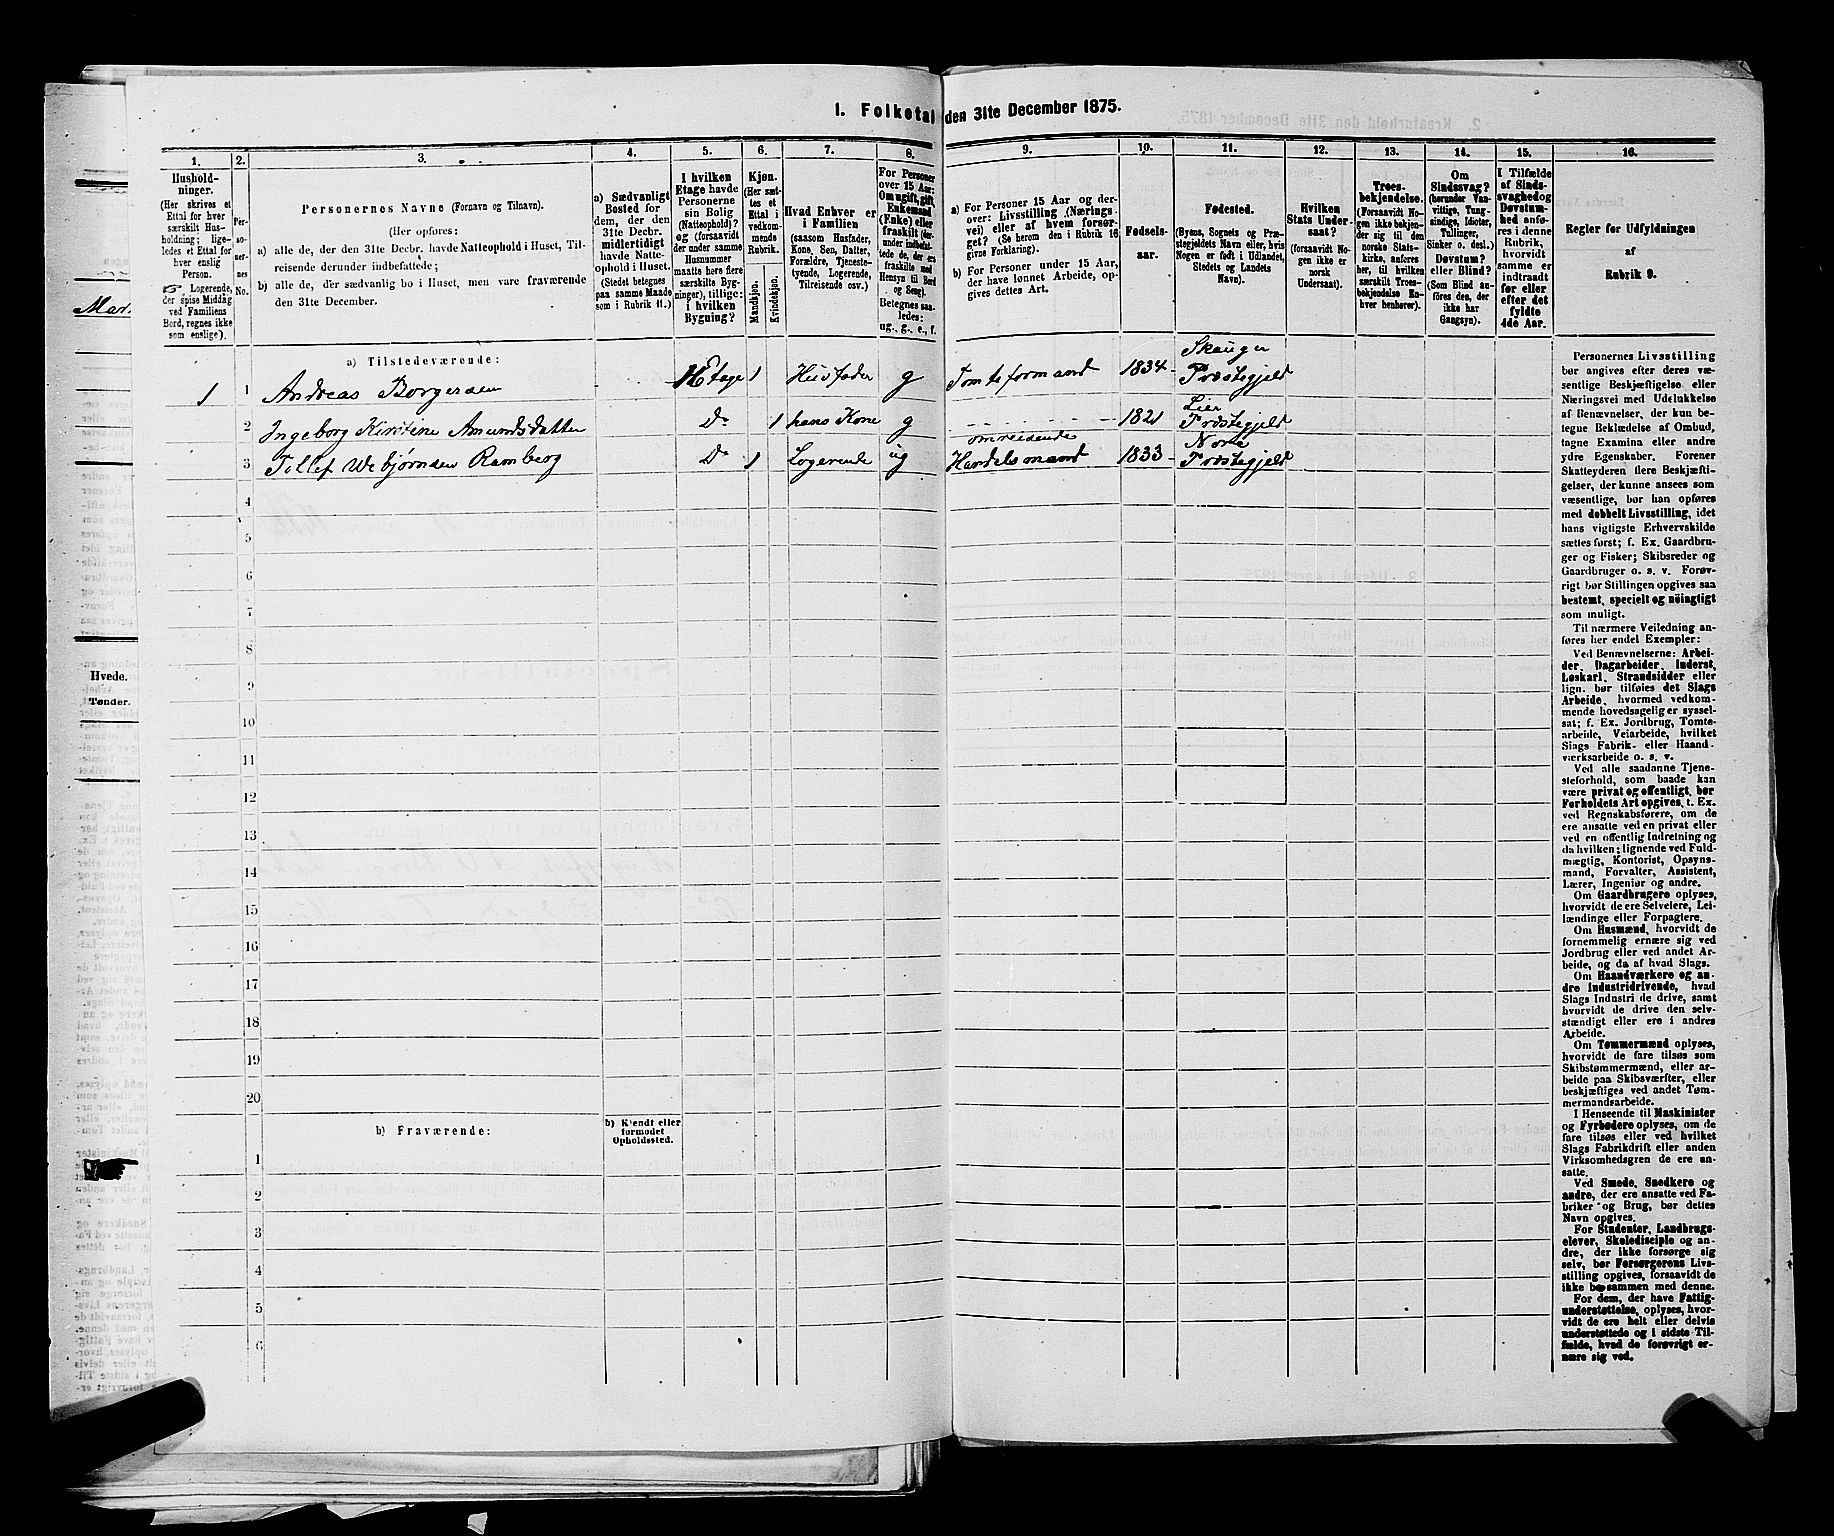 1. Folketal den 31te December 1875.
1.
2.
3.
4.
5.
6.
7.
8.
9.
10.
11.
12.
13.
14.
15.
16.
Hushold-
ninger.
(Her skrives et
Ettal for hver
særskilt Hus-
holdning; lige-
ledes et Ettal for
hver enslig
Person.
Logerende,
der spise Middag
ved Familiens
Bord, regnes ikke
som enslige).
Per-
so-
ner-
nes
No.
Personernes Navne (Fornavn og Tilnavn).
(Her opføres:
a) alle de, der den 31te Decbr. havde Natteophold i Huset, Til-
reisende derunder indbefattede;
b) alle de, der sædvanlig bo i Huset, men vare fraværende
den 31te December.
a) Sædvanligt
Bosted for
dem, der den
31te Decbr.
midlertidigt
havde Natte-
ophold i Huset.
(Stedet betegnes
paa samme Maade
som i Rubrik 11.)
I hvilken
Etage havde
Personerne
sin Bolig
(Natteophold)?
og (forsaavidt
der under samme
Husnummer
maatte høre flere
særskilte Byg-
ninger), tillige:
i hvilken
Bygning?
Kjøn.
(Her sæt-
tes et
Ettal i
vedkom-
mende
Rubrik.
Mandkjøn.
Kvindekjøn.
Hvad Enhver er
i Familien
(saasom Husfader,
Kone, Søn, Datter,
Forældre, Tjeneste-
tyende, Logerende,
Tilreisende osv.)
For Personer
over 15 Aar:
Om ugift, gift,
Enkemand
(Enke) eller
fraskilt (der-
under indbefat-
tede de, der ere
fraskilte med
Hensyn til Bord
og Seng).
Betegnes saa-
ledes:
ug., g., e., f.
a) For Personer 15 Aar og der-
over: Livsstilling (Nærings-
vei) eller af hvem forsør-
get? (Se herom den i Rubrik 16
givne Forklaring).
b) For Personer under 15 Aar,
der have lønnet Arbeide, op-
gives dettes Art.
Fødsels-
aar.
Fødested.
(Byens, Sognets og Præ-
stegjeldets Navn eller, hvis
Nogen er født i Udlandet,
Stedets og Landets
Navn).
Hvilken
Stats Under-
saat?
(forsaavidt No-
gen ikke er
norsk
Undersaat).
Troes-
bekjendelse.
(Forsaavidt No-
gen ikke bekjen-
der sig til den
norske Stats-
kirke, anføres
her, til hvilken
særskilt Troes-
bekjendelse En-
hver henhører).
Om
Sindssvag?
(herunder Vaa-
vittige, Tung-
sindige, Idioter,
Tullinger,
Sinker o. desl.)
Døvstum?
eller Blind?
(Som Blind an-
føres den, der
ikke har
Gangsyn).
I Tilfælde
af Sinds-
svaghed og
Døvstum-
hed anfø-
res i denne
Rubrik,
hvorvidt
samme er
indtraadt
før eller
efter det
fyldte
4de Aar.
Regler for Udfyldningen
af
Rubrik 9.
a) Tilstedeværende:
1 1 Andreas Borgersen Etage 1 Husfader g Tomteformand 1834 Skauger Præstegjeld
2 Ingeborg Kirstine Amundsdatter Do 1 hans Kone g 1821 Lier Præstegjeld
3 Tollef Webjørnsen Ramberg Do 1 Logerende ug omreisende Handelsmand 1833 Nore Præstegjeld
4
5
6
7
8
9
10
11
12
13
14
15
16
17
18
19
20
b) Fraværende:
b) Kjendt eller
formodet
Opholdssted.
1
2
3
4
5
6
Personernes Livsstilling
bør angives efter deres væ-
sentlige Beskjæftigelse eller
Næringsvei med Udelukkelse
af Benævnelser, der kun be-
tegne Beklædelse af Ombud,
tagne Examina eller andre
ydre Egenskaber. Forener
Skatteyderen flere Beskjæfti-
gelser, der kunne ansees som
væsentlige, bør han opføres
med dobbelt Livsstilling, idet
hans vigtigste Erhvervskilde
sættes først; f. Ex. Gaardbru-
ger og Fisker; Skibsreder og
Gaardbruger o. s. v. Forøv-
rigt bør Stillingen opgives saa
bestemt, specielt og nöiagtigt
som muligt.
Til nærmere Veiledning an-
føres her endel Exempler:
Ved Benævnelserne: Arbei-
der, Dagarbeider, Inderst,
Løskarl, Strandsidder eller
lign. bør tilføies det Slags
Arbeide, hvormed vedkom-
mende hovedsagelig er syssel-
sat; f. Ex. Jordbrug, Tomte-
arbeide, Veiarbeide, hvilket
Slags Fabrik- eller Haand-
værksarbeide o. s. v.
Ved alle saadanne Tjene-
steforhold, som baade kan
være privat og offentligt, bør
Forholdets Art opgives, t. Ex.
ved Regnskabsførere, om de
ere ansatte ved en privat eller
ved en offentlig Indretning og
da hvilken; lignende ved Fuld-
mægtig, Kontorist, Opsyns-
mand, Forvalter, Assistent,
Lærer, Ingeniør og andre.
Om Gaardbrugere oplyses,
hvorvidt de ere Selveiere, Lei-
lændinge eller Forpagtere.
Om Husmænd, hvorvidt de
fornemmelig ernære sig ved
Jordbrug eller ved andet Ar-
beide, og da af hvad Slags.
Om Haandværkere og an-
dre Industridrivende, hvad
Slags Industri de drive, samt
hvorvidt de drive den selv-
stændigt eller ere i andres
Arbeide.
Om Tømmermænd oplyses,
hvorvidt de fare tilsøs som
Skibstømmermænd, eller ar-
beide paa Skibsværfter, eller
beskjæftiges ved andet Tøm-
mermandsarbeide.
I Henseende til Maskinister
og Fyrbødere oplyses, om de
fare tilsøs eller ved hvilket
Slags Fabrikdrift eller anden
Virksomhedsgren de ere an-
satte.
Ved Smede, Snedkere og
andre, der ere ansatte ved Fa-
briker og Brug, bør dettes
Navn opgives.
For Studenter, Landbrugs-
elever, Skoledisciple og an-
dre, der ikke forsørge sig
selv, bør Forsørgerens Livs-
stilling opgives, forsaavidt de
ikke bo sammen med denne.
For dem, der have Fattig-
understøttelse, oplyses, hvor-
vidt de ere helt eller delvis
understøttede og i sidste Til-
fælde, hvad de forøvrigt er-
nære sig ved.
Hvede.
Tønder.